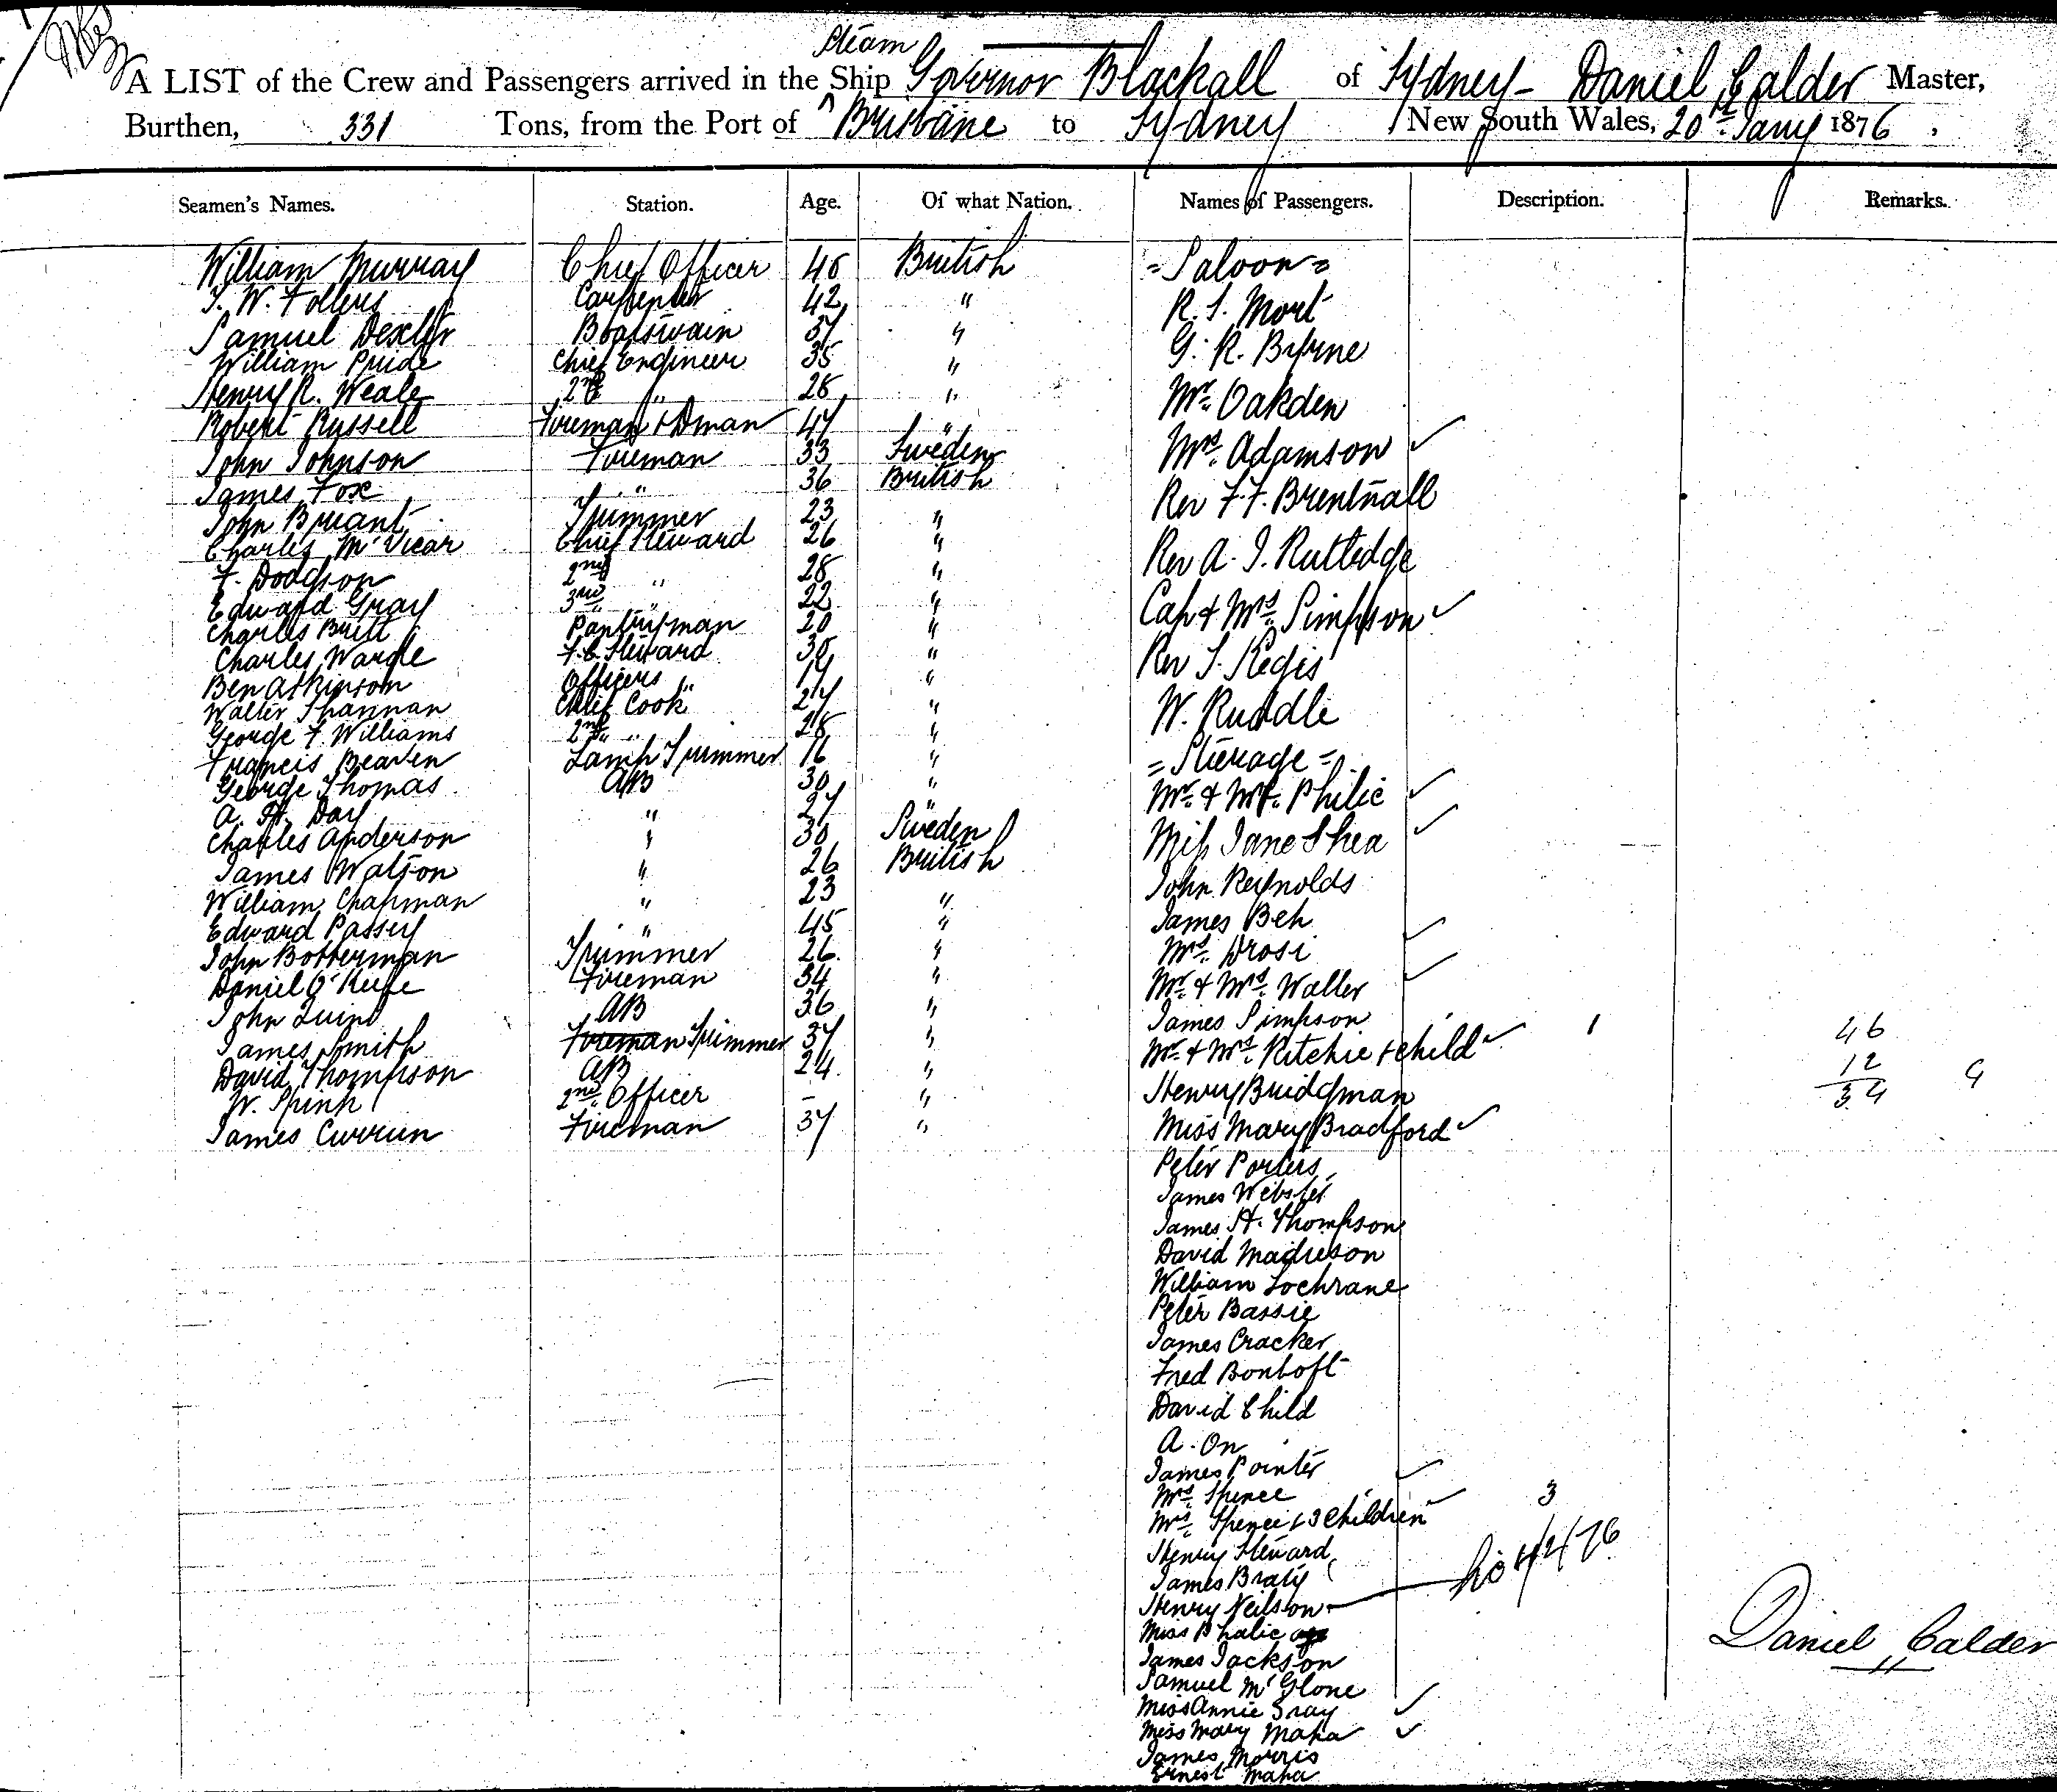 Steam
A LIST of the Crew and Passengers arrived in the Ship ^ Governor Blackall of Sydney - Daniel Calder Master,
Burthen, 331 Tons, from the Port of Brisbane to Sydney New South Wales, 20th Jany 1876,
Seamen's Names. Station. Age. Of what Nation. Names of Passengers. Description. Remarks.
William Murray Chief Officer 46 British
Carpenter 42 "
Samuel Dexter Boatswain 37 "
William Pride Chief Engineer 35 "
Henry R. Weale 2nd " 28 "
Robert Russell Fireman & Dman 47 "
John Johnson Fireman 33 Sweden
James Fox " 36 British
John Bryant Trimmer 23 "
Charles McVicar Chief Steward 26 "
F. Dodgson 2nd " 28 "
Edward Gray 3rd " 22 "
Charles Brett Pantryman 20 "
Charles Wardle F.C. Steward 30 "
Ben Atkinson Officers " 19 "
Walter Shannan Chief Cook 27 "
George F. Williams 2nd " 28 "
Francis Beaven Lamp Trimmer 16 "
George Thomas AB 30 "
A. H. Day " 27 "
Charles Anderson " 30 Sweden
James Watson " 26 British
William Chapman " 23 "
Edward Passey " 45 "
John Botterman Trimmer 26 "
Daniel O'Keefe Fireman 34 "
John Quinn AB 36 "
James Smith Fireman Trimmer 37 "
David Thompson AB 24 "
W. Spink 2nd Officer - "
James Curran Fireman 37 "
= Saloon =
R. S. Mort
G. R. Byrne
Mr. Oakden
Mrs. Adamson ✓
Rev F. F. Brentnall
Rev A. J. Rutledge
Capt & Mrs Simpson ✓
Rev J. Regis
W. Ruddle
= Steerage =
Mr. & Mrs. Philic ✓
Miss Jane Shea ✓
John Reynolds
James Beh
Mrs. Drosi ✓
Mr. & Mrs. Waller ✓
James Simpson
Mr. & Mrs. Ritchie & child ✓ 1
Henry Bridgman
Miss Mary Bradford ✓
Peter Porters
James Webster
James H. Thompson
David Madieson
William Lochrane
Peter Bassie
James Cracker
Fred Bonhoft
David Child
A. On
James Pointer
Mrs. Spence ✓
Mrs. Spence & 3 children ✓ 3
Henry Steward
James Braty
Henry Neilson
Miss Phalic
James Jackson
Samuel McGlone
Miss Annie Gray ✓
Miss Mary Maha ✓
James Morris
Ernest Maha
46
12
34 9
4/2/76
Daniel Calder